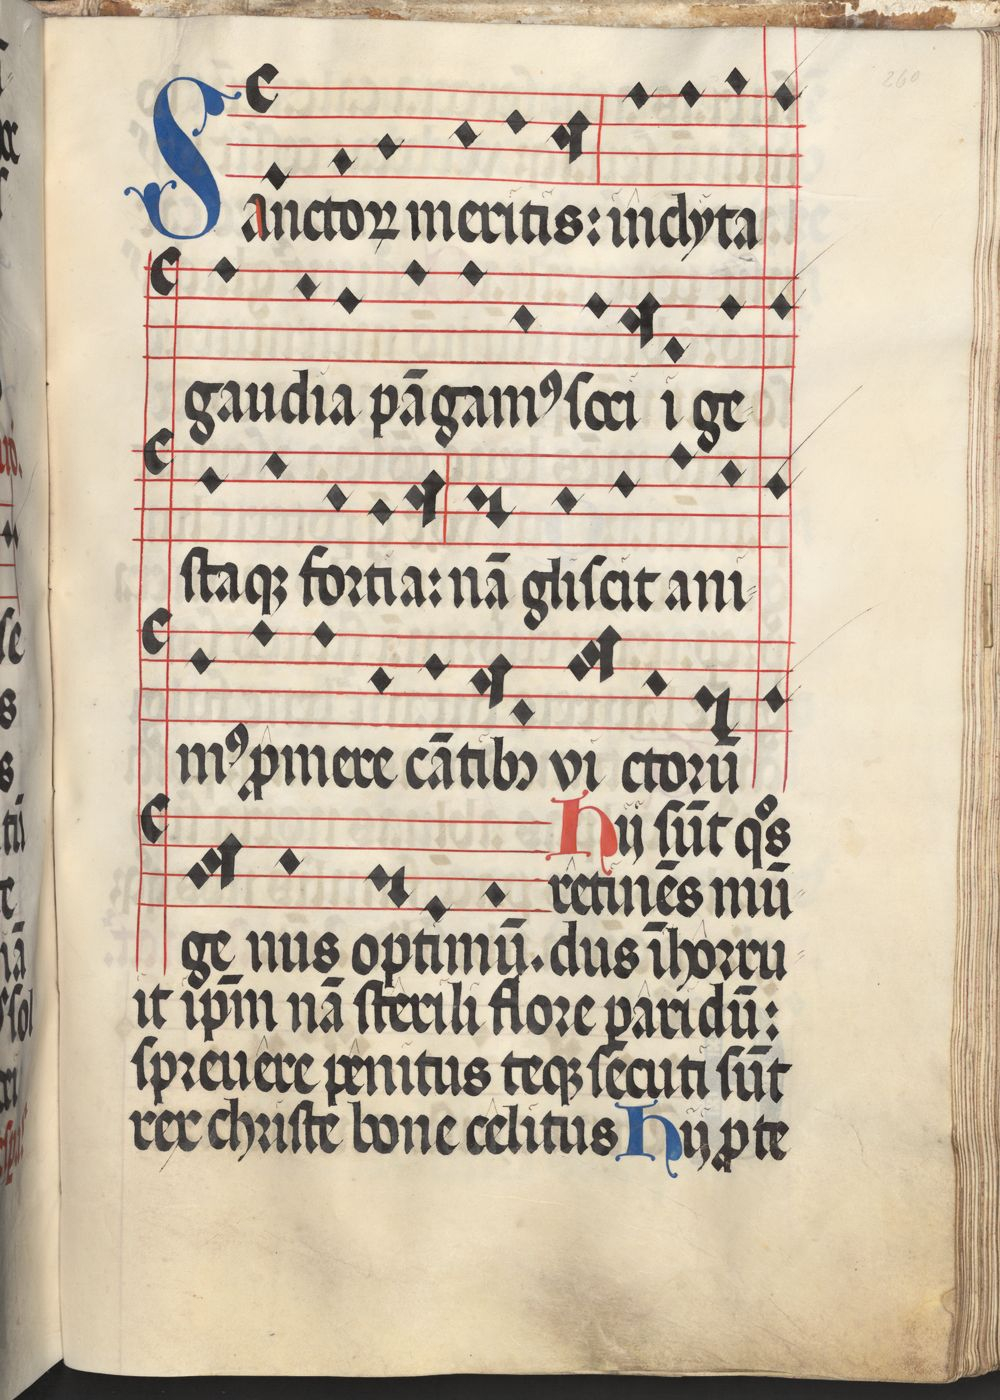 260
Sanctoꝝ meritis: inclyta
gaudia pāgamꝰ socii ī ge
staqꝫ fortia: nā gliscit ani
mꝰ ꝓmere cātibꝫ victorū
Hij sūt qͦs
retinēs mū
genus optimū. dus īhorru
it ip̄m nā sterili flore ꝑaridū:
spreuēre penitus teqꝫ secuti sūt
rex christe bone celitus Hij ꝓ te